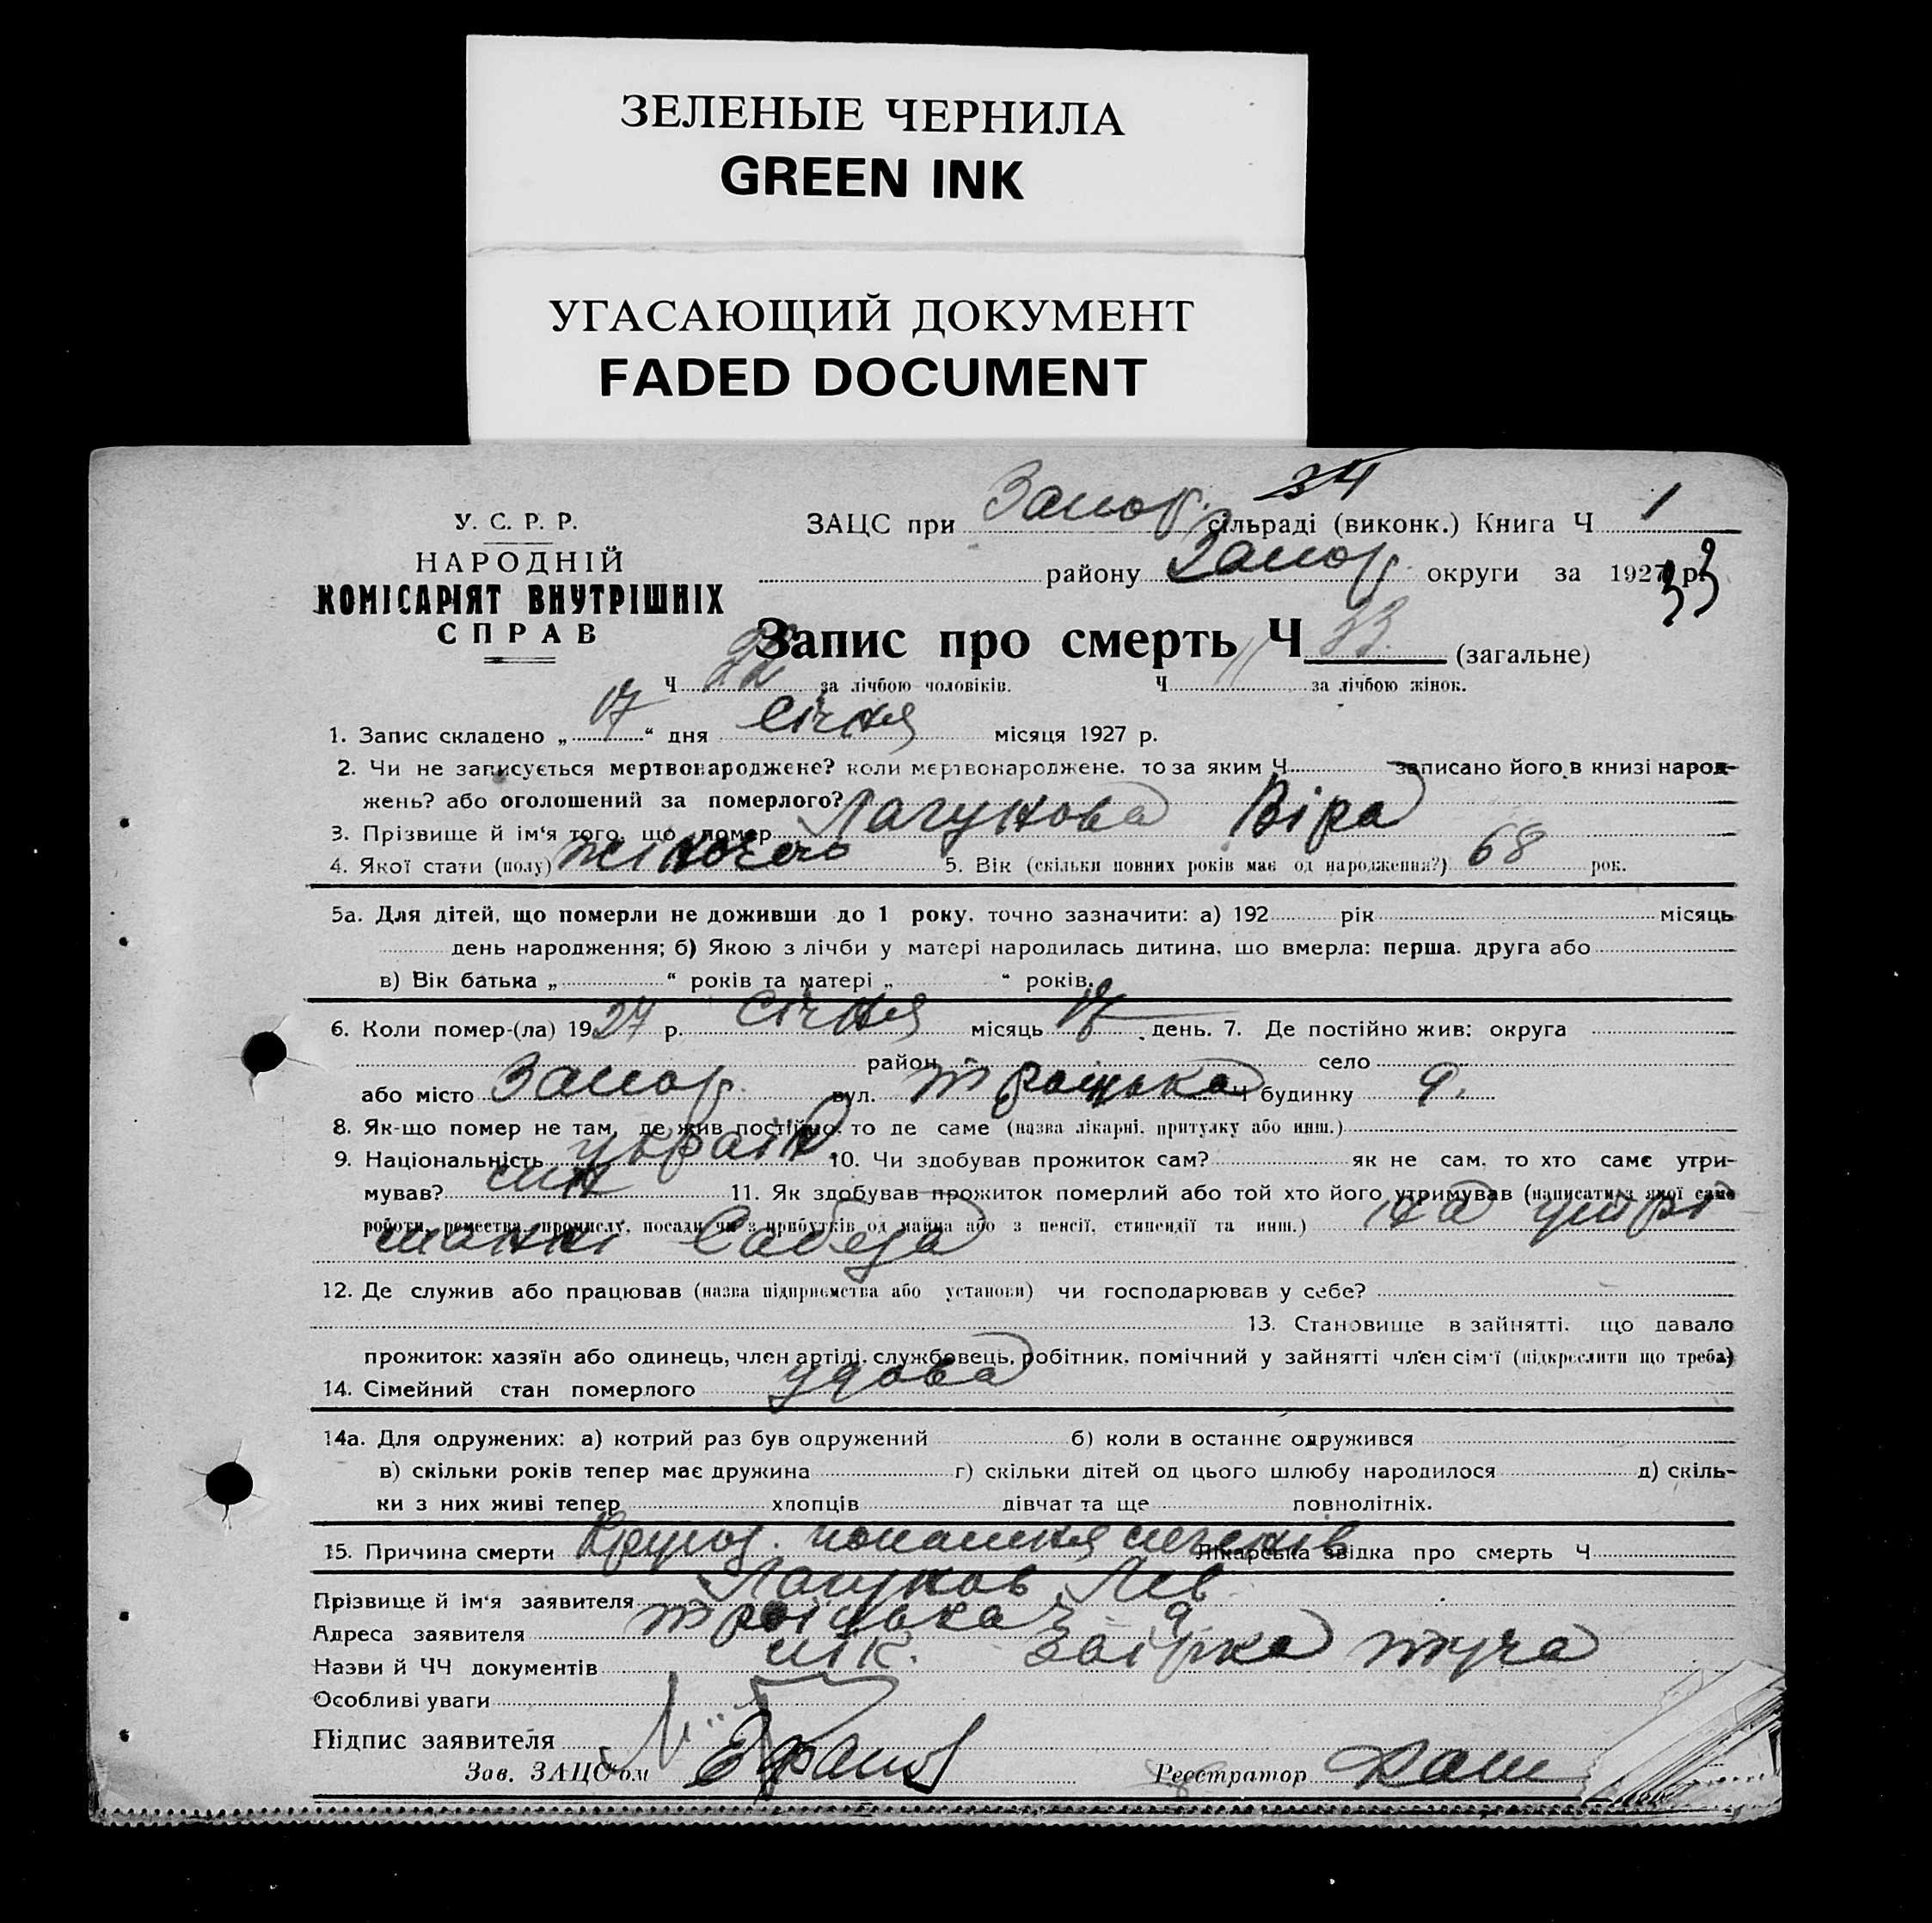 ЗЕЛЕНЫЕ ЧЕРНИЛА
GREEN INK
УГАСАЮЩИЙ ДОКУМЕНТ
FADED DOCUMENT
34
У. С. Р. Р.
НАРОДНІЙ
КОМІСАРІЯТ ВНУТРІШНІХ
СПРАВ
ЗАЦС при Запор. сільраді (виконк.) Книга Ч 1
району Запор. округи за 1927 р.
33
Запис про смерть Ч 33. (загальне)
Ч 22 за лічбою чоловіків. Ч 11 за лічбою жінок.
1. Запис складено „ 17 “ дня Січня місяця 1927 р.
2. Чи не записується мертвонароджене? коли мертвонароджене, то за яким Ч записано його в книзі народ-
жень? або оголошений за померлого?
3. Прізвище й ім‘я того, що помер Лагунова Віра
4. Якої стати (полу) жіночою 5. Вік (скільки повних років має од народження?) 68 рок.
5а. Для дітей, що померли не доживши до 1 року, точно зазначити: а) 192 рік місяць
день народження; б) Якою з лічби у матері народилась дитина, що вмерла: перша, друга або
в) Вік батька „ “ років та матері „ “ років.
6. Коли помер-(ла) 1927 р. Січня місяць 17 день. 7. Де постійно жив: округа
район село
або місто Запор. вул. Троїцька Ч будинку 9.
8. Як-що помер не там, де жив постійно, то де саме (назва лікарні, притулку або инш.)
9. Національність україн 10. Чи здобував прожиток сам? як не сам, то хто саме утри-
мував? син 11. Як здобував прожиток померлий або той хто його утримував (написати з якої саме
роботи, ремества, промислу, посади чи з прибутків од майна або з пенсії, стипендії та инш.) на утрі
манні Сабеза
12. Де служив або працював (назва підприємства або установи) чи господарював у себе?
13. Становище в зайнятті, що давало
прожиток: хазяїн або одинець, член артілі, службовець, робітник, помічний у зайнятті член сім‘ї (підкреслити що треба)
14. Сімейний стан померлого удова
14а. Для одружених: а) котрий раз був одружений б) коли в останнє одружився
в) скільки років тепер має дружина г) скільки дітей од цього шлюбу народилося д) скіль-
ки з них живі тепер хлопців дівчат та ще повнолітніх.
15. Причина смерти Крупоз. легенів Лікарська звідка про смерть Ч
Прізвище й ім‘я заявителя Лагунов Лев
Адреса заявителя Троїцька 9
Назви й ЧЧ документів лік.
Особливі уваги
Підпис заявителя
Зав. ЗАЦС‘ом
Реєстратор